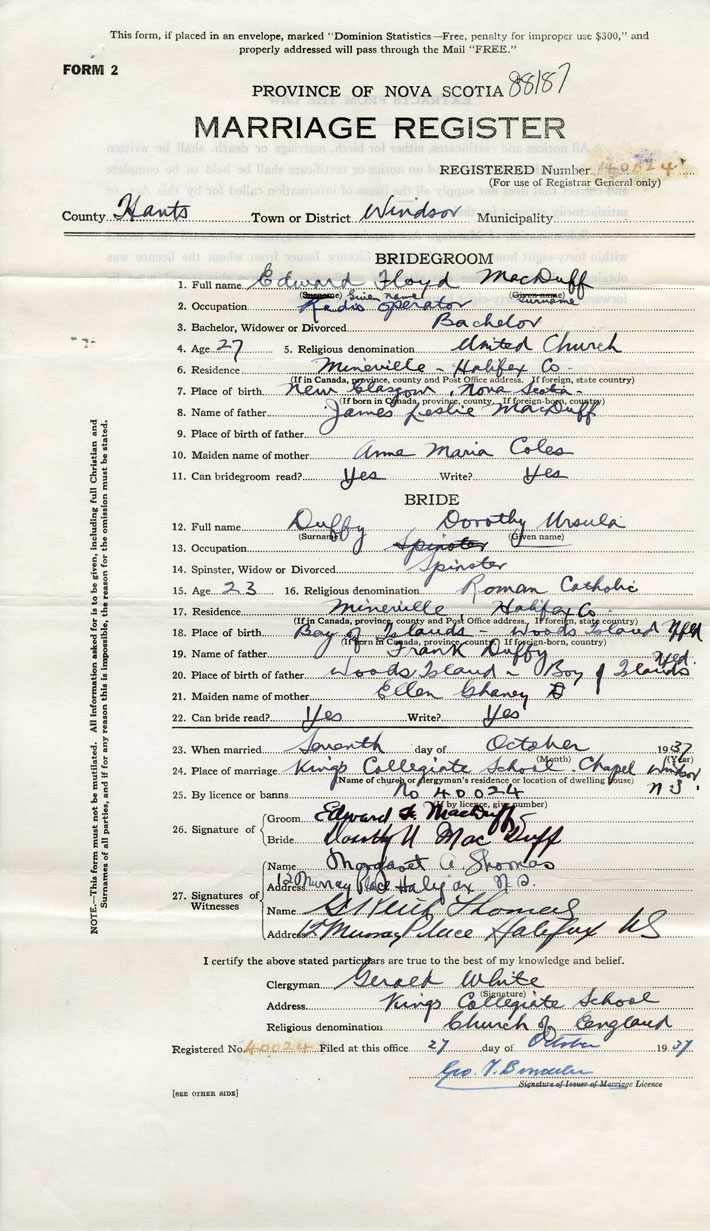 This form, if placed in an envelope, marked "Dominion Statistics—Free, penalty for improper use $300," and
properly addressed will pass through the Mail "FREE."
FORM 2
PROVINCE OF NOVA SCOTIA 88187
MARRIAGE REGISTER
REGISTERED Number 40024
(For use of Registrar General only)
County Hants Town or District Windsor Municipality
BRIDEGROOM
1. Full name Edward Floyd MacDuff
(Surname) Given name (Given name) Surname
2. Occupation Radio Operator
3. Bachelor, Widower or Divorced Bachelor
4. Age 27 5. Religious denomination United Church
6. Residence Mineville - Halifax Co -
(If in Canada, province, county and Post Office address. If foreign, state country)
7. Place of birth New Glasgow, Nova Scotia -
(If born in Canada, province, county. If foreign-born, county)
8. Name of father James Leslie MacDuff
9. Place of birth of father
10. Maiden name of mother Anne Maria Coles
11. Can bridegroom read? Yes Write? Yes
BRIDE
12. Full name Duffy Dorothy Ursula
(Surname) (Given name)
13. Occupation Spinster
14. Spinster, Widow or Divorced Spinster
15. Age 23 16. Religious denomination Roman Catholic
17. Residence Mineville Halifax Co -
(If in Canada, province, county and Post Office address. If foreign, state country)
18. Place of birth Bay of Islands - Woods Island Nfld
(If born in Canada, province, county. If foreign-born, country)
19. Name of father Frank Duffy
20. Place of birth of father Woods Island - Bay of Islands Nfld.
21. Maiden name of mother Ellen
22. Can bride read? Yes Write? Yes
23. When married Seventh day of October 1937
(Month) (Year)
24. Place of marriage Kings Collegiate School Chapel Windsor
(Name of church or clergyman's residence or location of dwelling house)
25. By licence or banns No 40024 N S.
(If by licence, give number)
26. Signature of Groom Edward F. MacDuff
Bride Dorothy U MacDuff
27. Signatures of Witnesses
Name Margaret A Thomas
Address 12 Murray Place Halifax N.S.
Name G Keith Thomas
Address 12 Murray Place Halifax NS
I certify the above stated particulars are true to the best of my knowledge and belief.
Clergyman Gerald White
(Signature)
Address Kings Collegiate School
Religious denomination Church of England
Registered No. 40024 Filed at this office 27 day of October 1937
Geo.
Signature of Issuer of Marriage Licence
[SEE OTHER SIDE]
NOTE.—This form must not be mutilated. All information asked for is to be given, including full Christian and
Surnames of all parties, and if for any reason this is impossible, the reason for the omission must be stated.